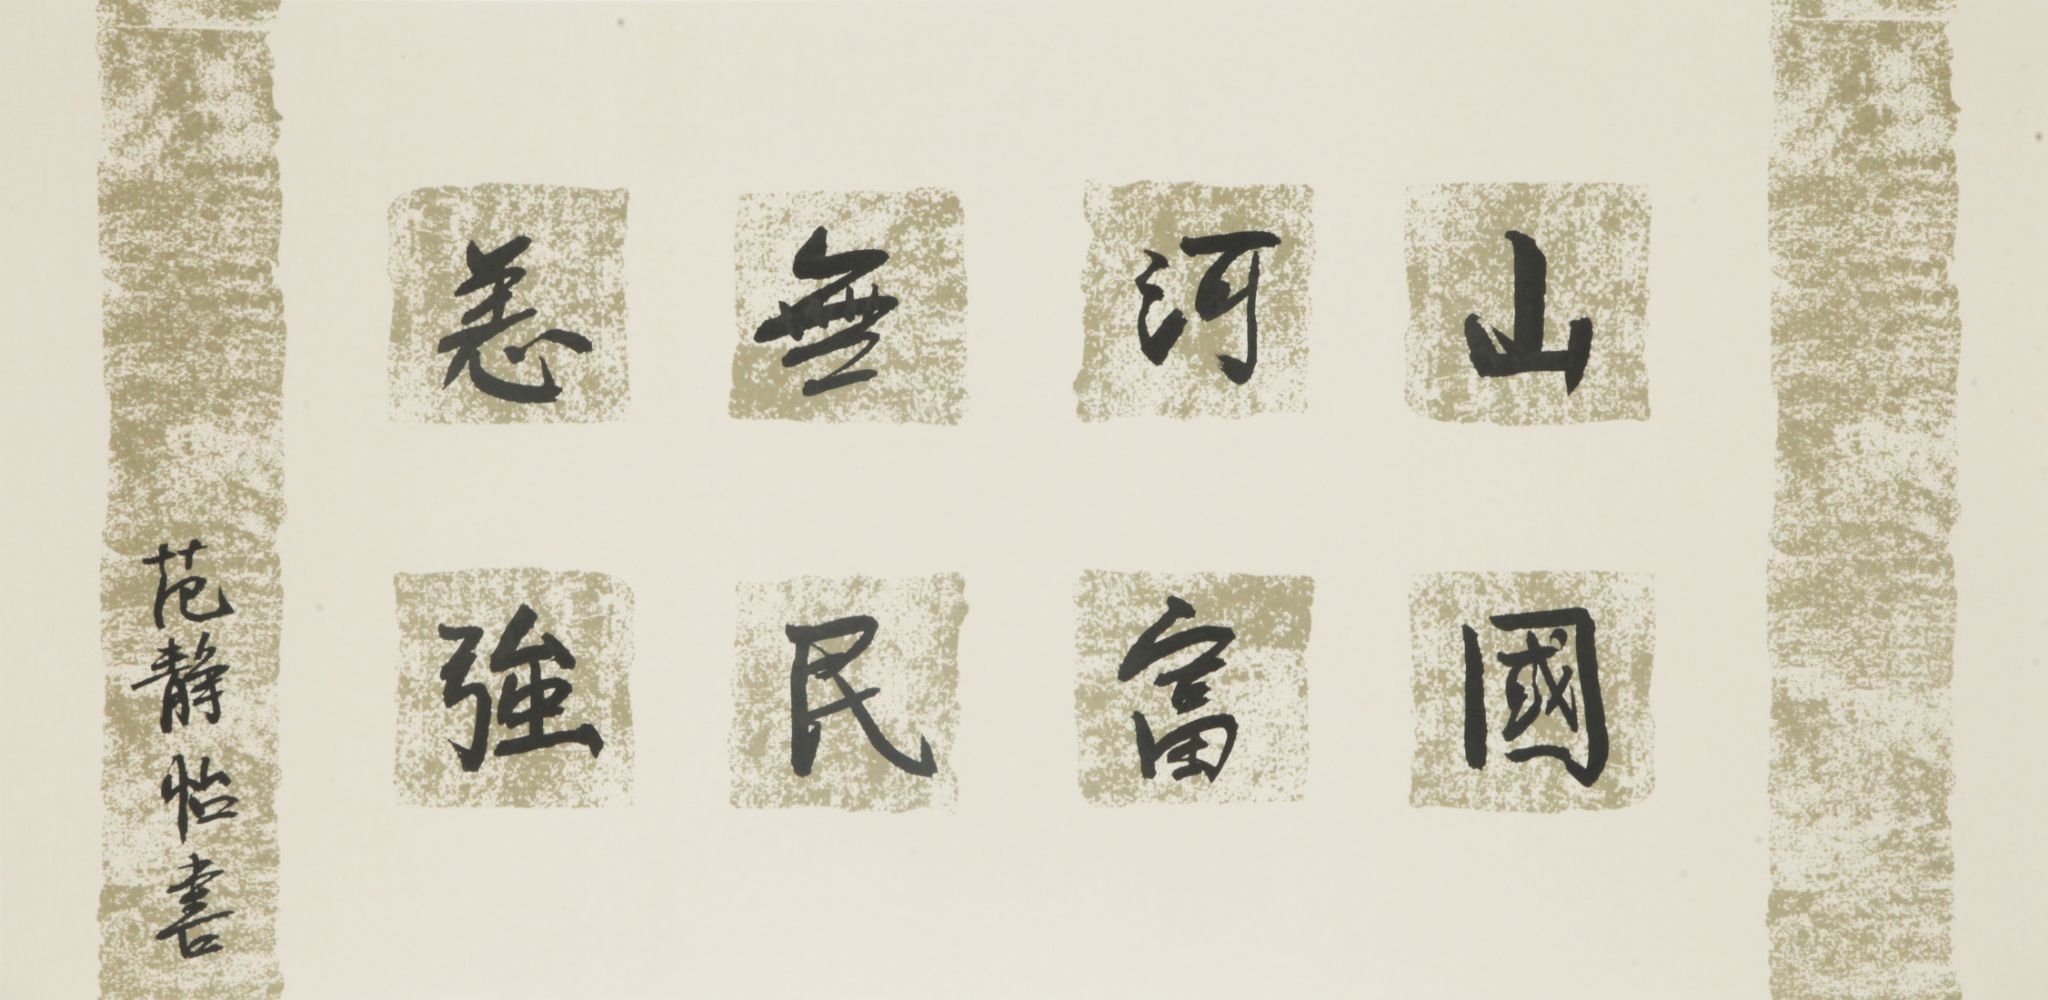 山河無恙
國富民強
范靜怡書